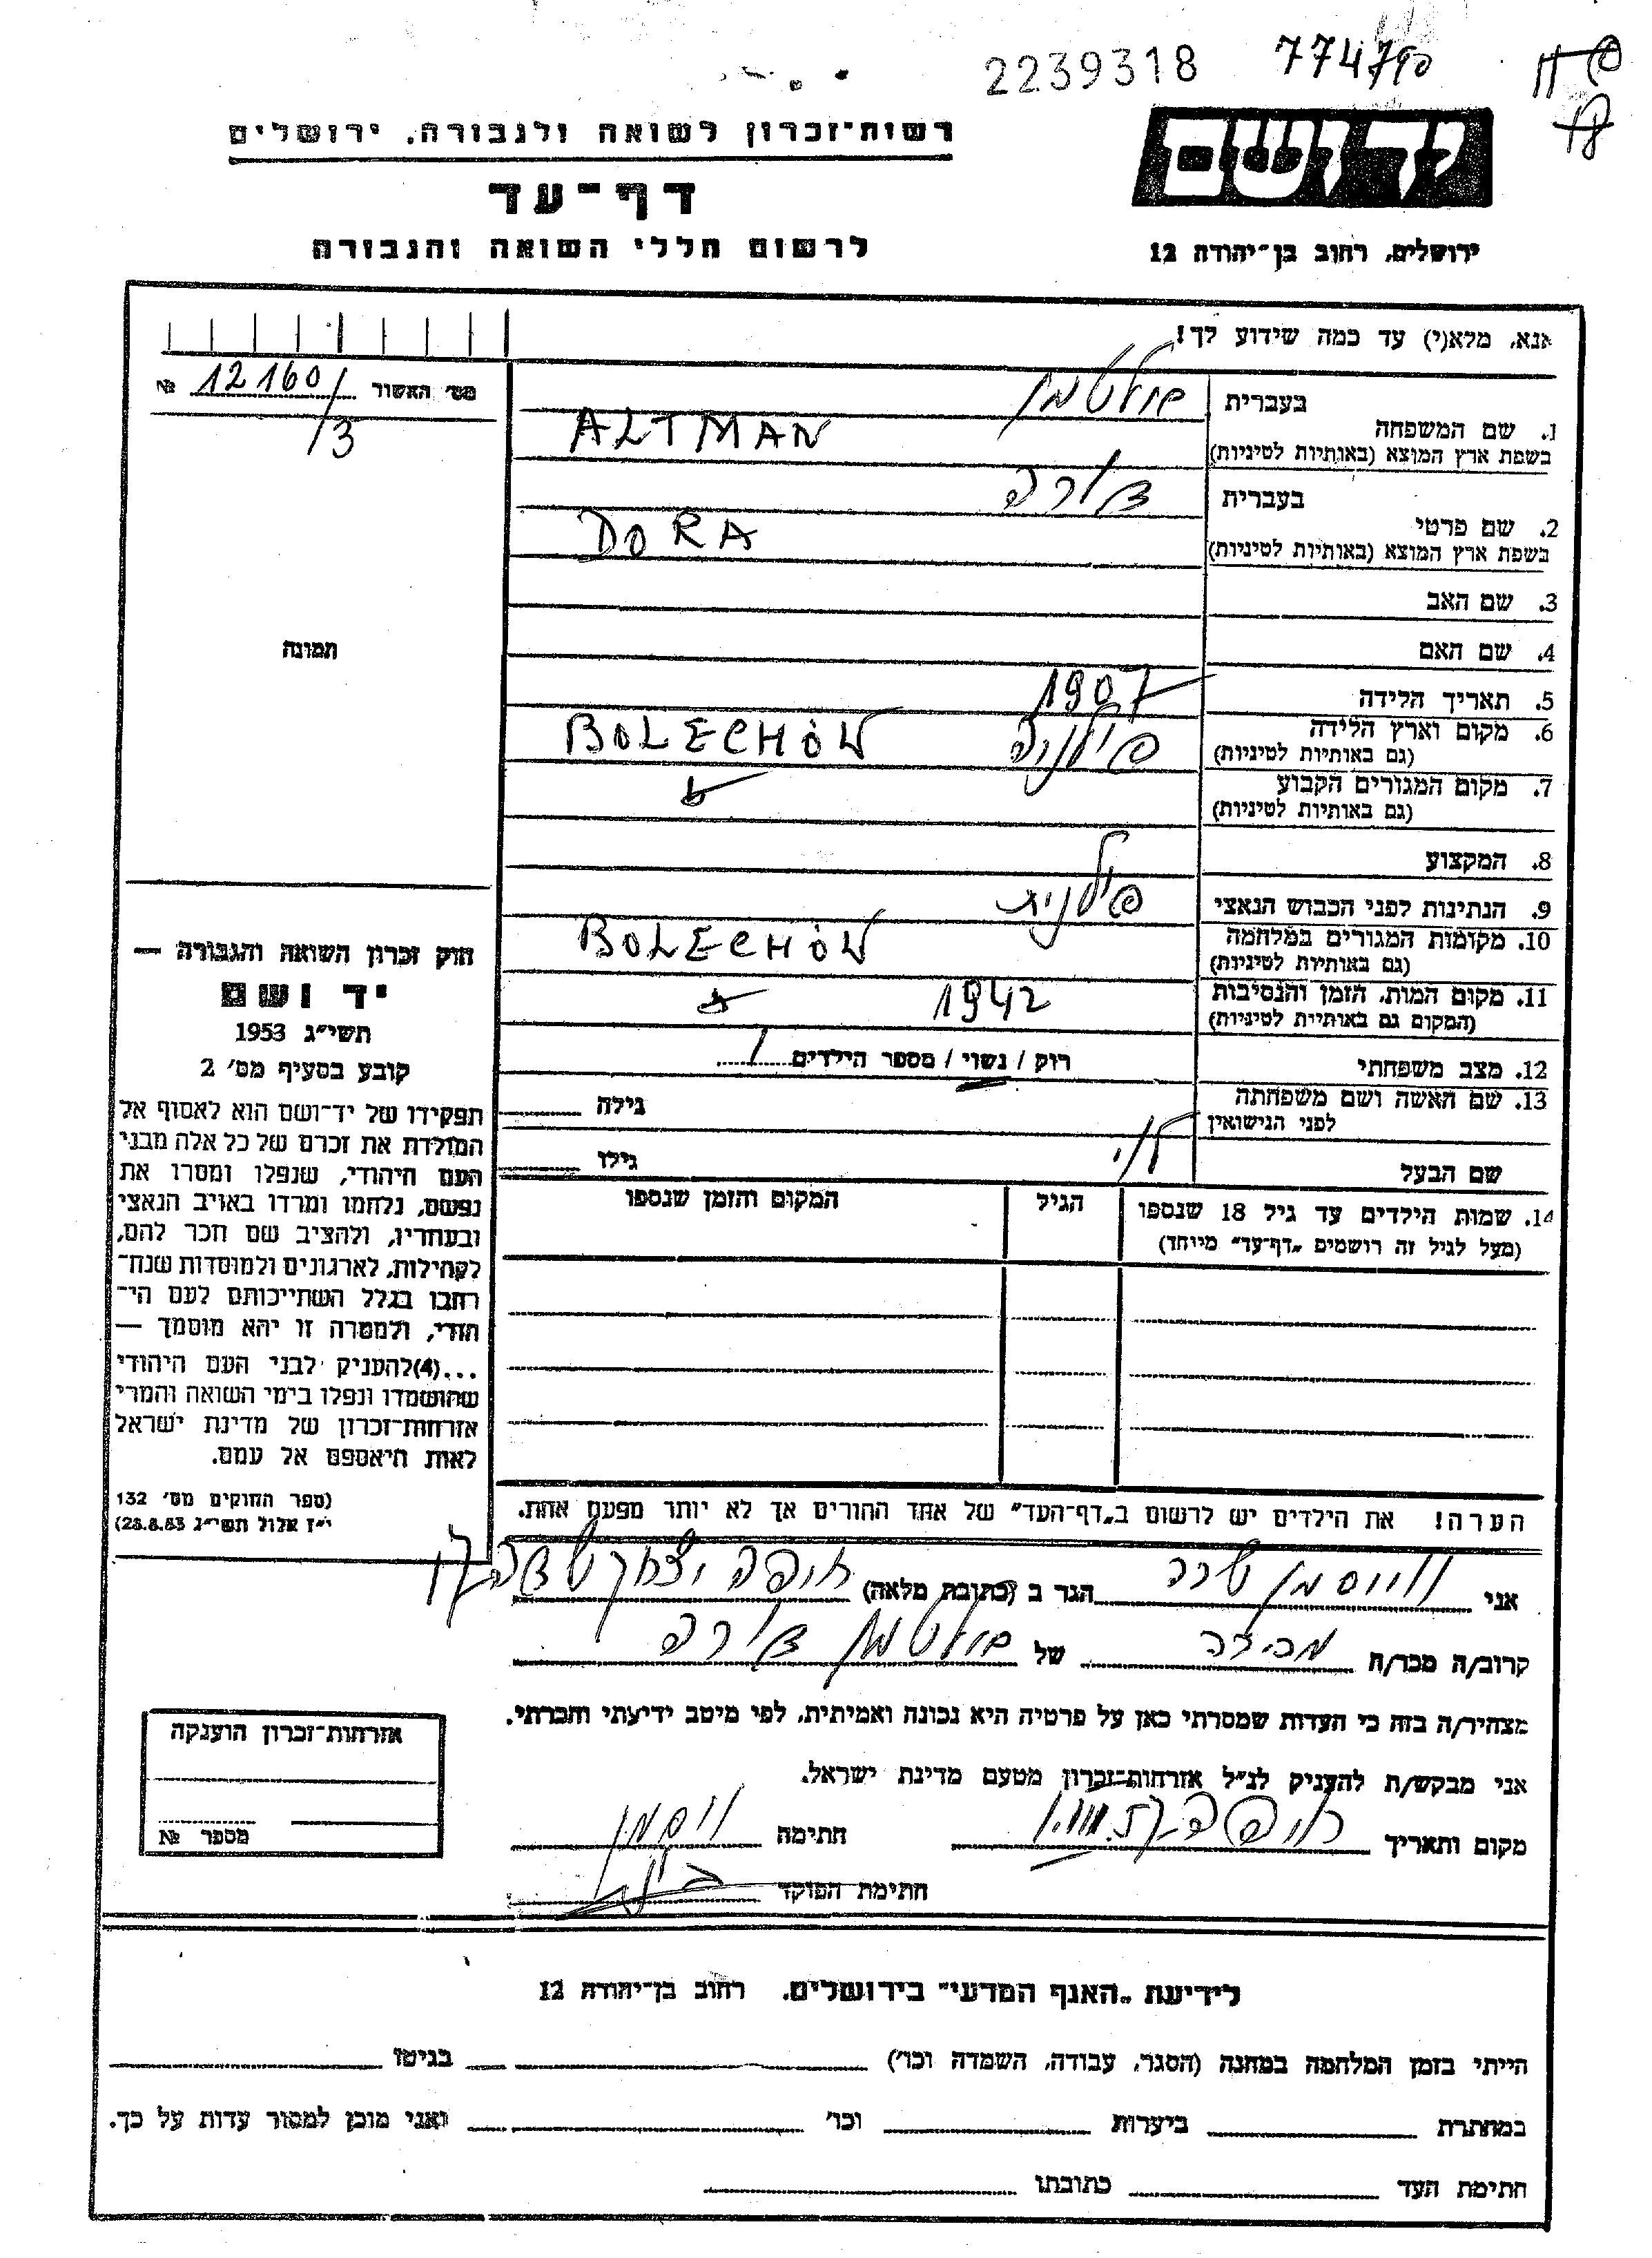 2239318
774790
רשות־זכרון לשואה ולגבורה, ירושלים
יד ושם
דף־עד
לרשום חללי השואה והגבורה
ירושלים, רחוב בן־יהודה 12
אנא, מלא(י) עד כמה שידוע לך!
מס׳ האשור 12160 №
/3
1. שם המשפחה
בעברית אלטמן
בשפת ארץ המוצא (באותיות לטיניות) ALTMAN
2. שם פרטי
בעברית דורה
בשפת ארץ המוצא (באותיות לטיניות) DORA
3. שם האב
4. שם האם
תמונה
5. תאריך הלידה 1907
6. מקום וארץ הלידה פולניה BOLECHÓW
(גם באותיות לטיניות)
7. מקום המגורים הקבוע
(גם באותיות לטיניות)
8. המקצוע
9. הנתינות לפני הכבוש הנאצי פולנית
10. מקומות המגורים במלחמה BOLECHÓW
(גם באותיות לטיניות)
11. מקום המות, הזמן והנסיבות 1942
(המקום גם באותיות לטיניות)
12. מצב משפחתי רוק / נשוי / מספר הילדים 1
13. שם האשה ושם משפחתה גילה
לפני הנישואין
שם הבעל גילו
14. שמות הילדים עד גיל 18 שנספו הגיל המקום והזמן שנספו
(מעל לגיל זה רושמים „דף־עד" מיוחד)
חוק זכרון השואה והגבורה —
יד ושם
תשי״ג 1953
קובע בסעיף מס׳ 2
תפקידו של יד־ושם הוא לאסוף אל
המולדת את זכרם של כל אלה מבני
העם היהודי, שנפלו ומסרו את
נפשם, נלחמו ומרדו באויב הנאצי
ובעוזריו, ולהציב שם וזכר להם,
לקהילות, לארגונים ולמוסדות שנח־
רבו בגלל השתייכותם לעם הי־
הודי, ולמטרה זו יהא מוסמך —
...(4)להעניק לבני העם היהודי
שהושמדו ונפלו בימי השואה והמרי
אזרחות־זכרון של מדינת ישראל
לאות היאספם אל עמם.
(ספר החוקים מס׳ 132
י״ז אלול תשי״ג 28.8.53)
הערה! את הילדים יש לרשום ב„דף־העד" של אחד ההורים אך לא יותר מפעם אחת.
אני וויסמן שרה הגר ב (כתובת מלאה) חיפה יצחק שדה
קרוב/ה מכר/ה מכירה של אלטמן דורה
מצהיר/ה בזה כי העדות שמסרתי כאן על פרטיה היא נכונה ואמיתית, לפי מיטב ידיעתי והכרתי.
אני מבקש/ת להעניק לנ״ל אזרחות־זכרון מטעם מדינת ישראל.
מקום ותאריך חיפה חתימה ויסמן
חתימת הפוקד
אזרחות־זכרון הוענקה
מספר №
לידיעת „האגף המדעי" בירושלים, רחוב בן־יהודה 12
הייתי בזמן המלחמה במחנה (הסגר, עבודה, השמדה וכו׳) בגיטו
במחתרת ביערות וכו׳ ואני מוכן למסור עדות על כך.
חתימת העד כתובתו